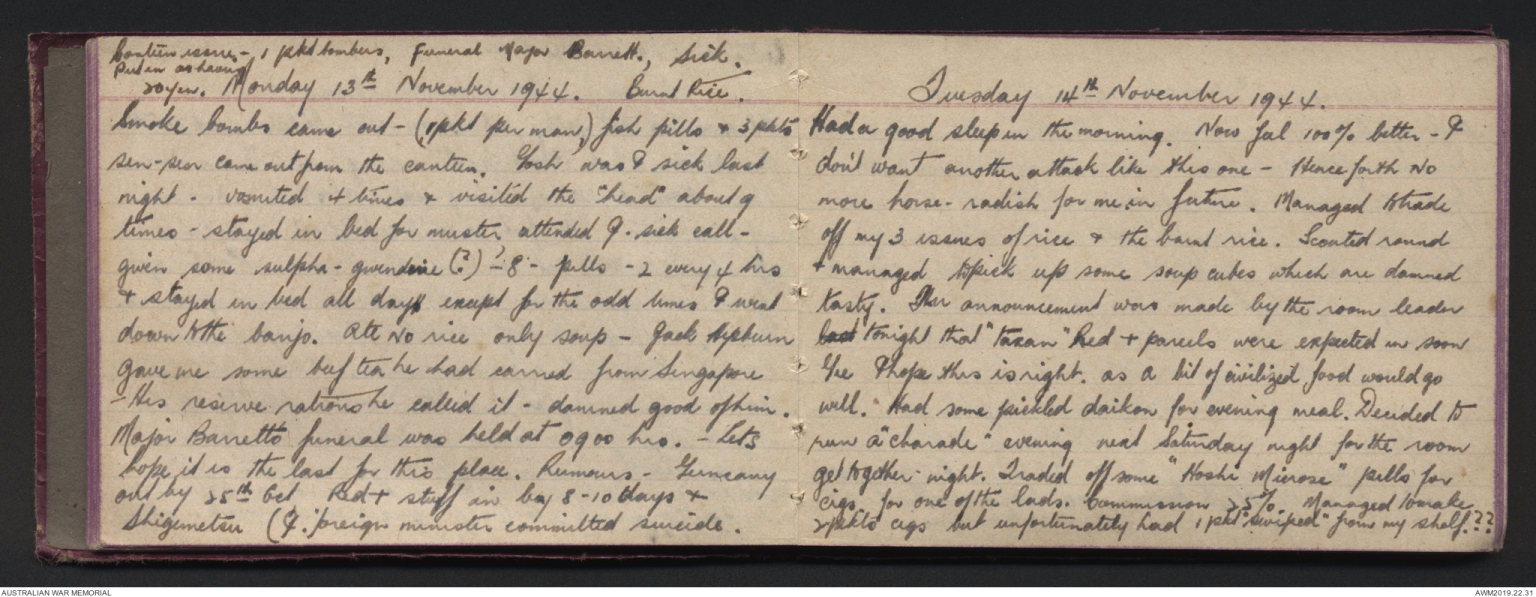 Canteen issue - 1 pkt bombers, Funeral Major Barrett., Sick.
Put in as having
20 yen. Monday 13th November 1944. Burnt Rice.
Smoke bombs came out - (1 pkt per man) fish pills + 3 pkts
sen-sen came out from the canteen. Gosh was I sick last
night - vomited 4 times + visited the "head" about 9
times - stayed in bed for muster attended I. sick call -
given some sulpha - (?) - 8 - pills - 2 every 4 hrs
+ stayed in bed all day except for the odd times I went
down to the banjo. Ate no rice only soup - Jack Hepburn
gave me some beef tea he had carried from Singapore
- His reserve rations he called it - damned good of him.
Major Barretts funeral was held at 0900 hrs. - Lets
hope it is the last for this place. Rumours - Germany
out by 25th Oct Red + stuff in by 8-10 days +
Shigemetsu (J. foreign minister committed suicide.
Tuesday 14th November 1944.
Had a good sleep in the morning. Now feel 100% better - I
don't want another attack like this one - Henceforth no
more horse-radish for me in future. Managed to trade
off my 3 issues of rice + the burnt rice. Scouted round
+ managed to pick up some soup cubes which are damned
tasty. An announcement was made by the room leader
last tonight that "Taxan" Red + parcels were expected in soon
Gee I hope this is right. as a bit of civilized food would go
well. Had some pickled daikon for evening meal. Decided to
run a "charade" evening next Saturday night for the room
get together night. Traded off some "Hoshi Microse" pills for
cigs for one of the lads. Commission 25%. Managed to make
2 pkts cigs but unfortunately had 1 pkt "swiped" from my shelf.??
AUSTRALIAN WAR MEMORIAL
AWM2019.22.31